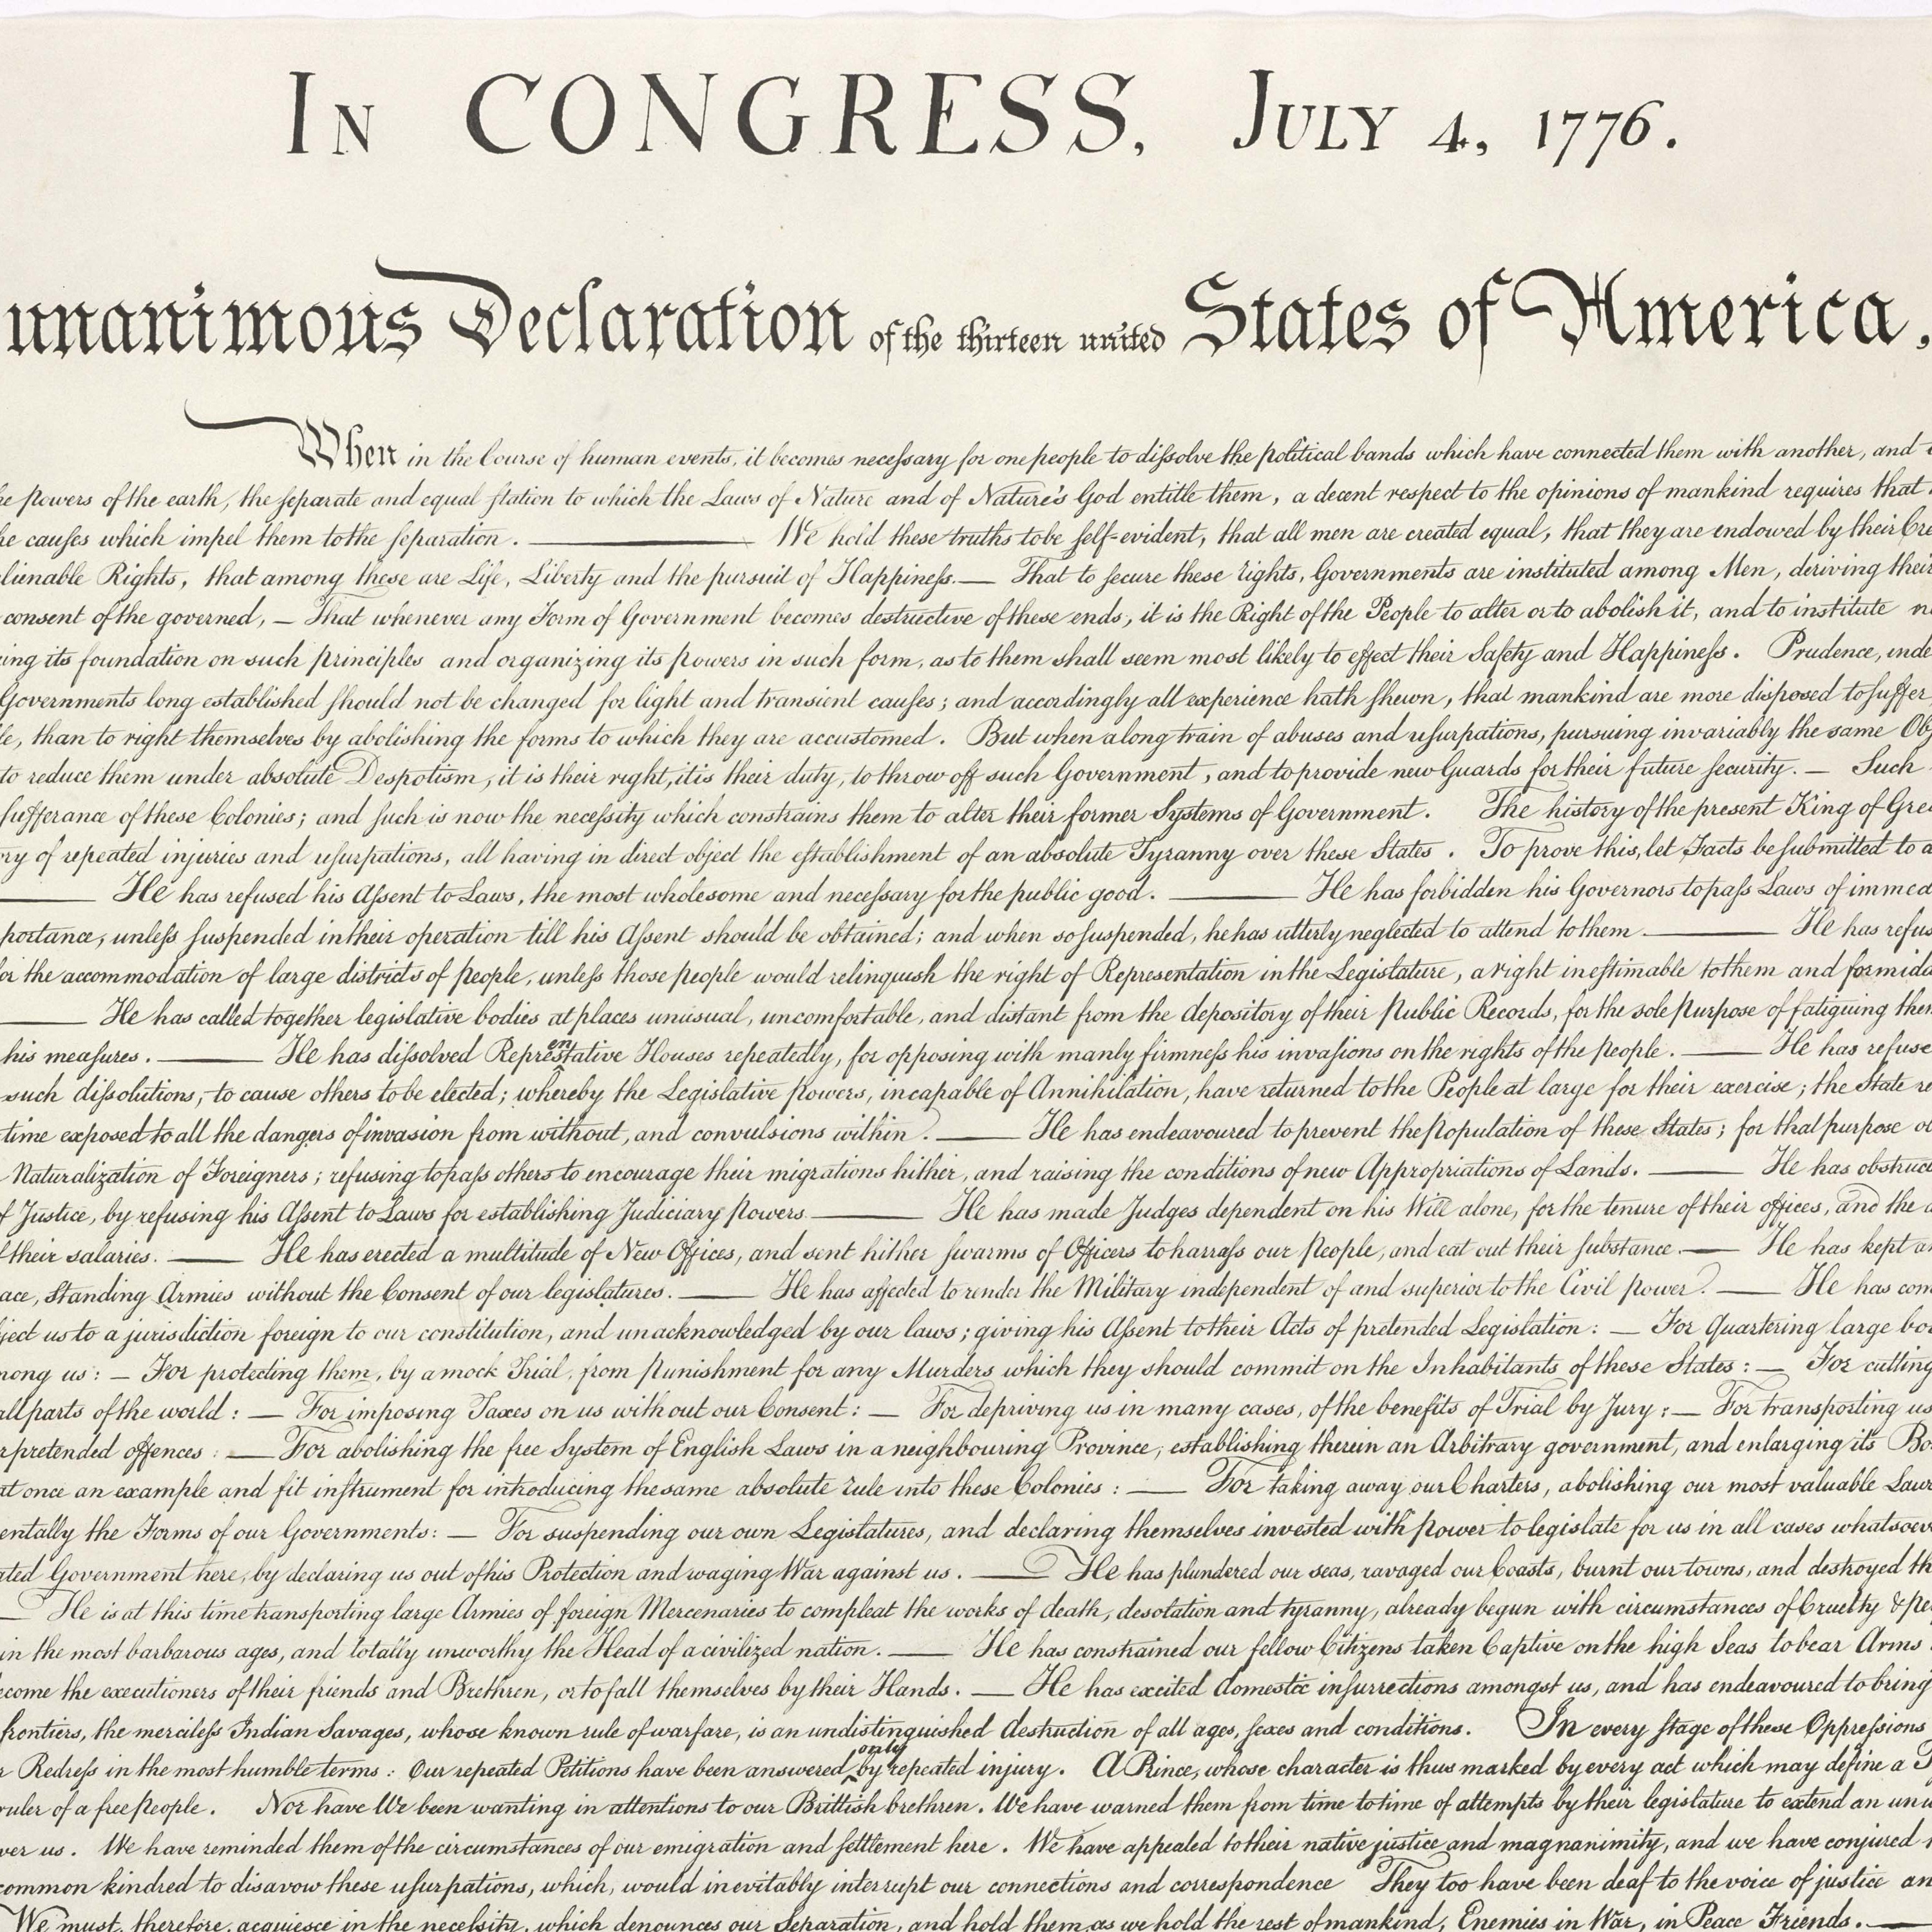 IN CONGRESS, JULY 4, 1776.
unanimous Declaration of the thirteen united States of America,
When in the Course of human events, it becomes necessary for one people to dissolve the political bands which have connected them with another, and
he powers of the earth, the separate and equal station to which the Laws of Nature and of Nature's God entitle them, a decent respect to the opinions of mankind requires that
he causes which impel them to the separation. ——— We hold these truths to be self-evident, that all men are created equal, that they are endowed by their Cre
lienable Rights, that among these are Life, Liberty and the pursuit of Happiness. — That to secure these rights, Governments are instituted among Men, deriving their
consent of the governed, — That whenever any Form of Government becomes destructive of these ends, it is the Right of the People to alter or to abolish it, and to institute n
ing its foundation on such principles and organizing its powers in such form, as to them shall seem most likely to effect their Safety and Happiness. Prudence, inde
Governments long established should not be changed for light and transient causes; and accordingly all experience hath shewn, that mankind are more disposed to suffer
le, than to right themselves by abolishing the forms to which they are accustomed. But when a long train of abuses and usurpations, pursuing invariably the same Obj
to reduce them under absolute Despotism, it is their right, it is their duty, to throw off such Government, and to provide new Guards for their future security. — Such
sufferance of these Colonies; and such is now the necessity which constrains them to alter their former Systems of Government. The history of the present King of Grea
ory of repeated injuries and usurpations, all having in direct object the establishment of an absolute Tyranny over these States. To prove this, let Facts be submitted to a
——— He has refused his Assent to Laws, the most wholesome and necessary for the public good. ——— He has forbidden his Governors to pass Laws of immed
portance, unless suspended in their operation till his Assent should be obtained; and when so suspended, he has utterly neglected to attend to them. ——— He has refus
for the accommodation of large districts of people, unless those people would relinquish the right of Representation in the Legislature, a right inestimable to them and formida
——— He has called together legislative bodies at places unusual, uncomfortable, and distant from the depository of their Public Records, for the sole purpose of fatiguing them
his measures. ——— He has dissolved Representative Houses repeatedly, for opposing with manly firmness his invasions on the rights of the people. ——— He has refuse
such dissolutions, to cause others to be elected; whereby the Legislative powers, incapable of Annihilation, have returned to the People at large for their exercise; the State re
time exposed to all the dangers of invasion from without, and convulsions within. ——— He has endeavoured to prevent the population of these States; for that purpose ob
Naturalization of Foreigners; refusing to pass others to encourage their migrations hither, and raising the conditions of new Appropriations of Lands. ——— He has obstruct
f Justice, by refusing his Assent to Laws for establishing Judiciary powers. ——— He has made Judges dependent on his Will alone, for the tenure of their offices, and the a
f their salaries. ——— He has erected a multitude of New Offices, and sent hither swarms of Officers to harrass our people, and eat out their substance. — He has kept am
ace, Standing Armies without the Consent of our legislatures. ——— He has affected to render the Military independent of and superior to the Civil power. — He has com
ject us to a jurisdiction foreign to our constitution, and unacknowledged by our laws; giving his Assent to their Acts of pretended Legislation: — For Quartering large bod
mong us: — For protecting them, by a mock Trial, from punishment for any Murders which they should commit on the Inhabitants of these States: — For cutting
all parts of the world: — For imposing Taxes on us without our Consent: — For depriving us in many cases, of the benefits of Trial by Jury: — For transporting us
r pretended offences: — For abolishing the free System of English Laws in a neighbouring Province, establishing therein an Arbitrary government, and enlarging its Bo
at once an example and fit instrument for introducing the same absolute rule into these Colonies: — For taking away our Charters, abolishing our most valuable Laws
entally the Forms of our Governments: — For suspending our own Legislatures, and declaring themselves invested with power to legislate for us in all cases whatsoev
ated Government here, by declaring us out of his Protection and waging War against us. — He has plundered our seas, ravaged our Coasts, burnt our towns, and destroyed th
— He is at this time transporting large Armies of foreign Mercenaries to compleat the works of death, desolation and tyranny, already begun with circumstances of Cruelty & pe
in the most barbarous ages, and totally unworthy the Head of a civilized nation. — He has constrained our fellow Citizens taken Captive on the high Seas to bear Arms
ecome the executioners of their friends and Brethren, or to fall themselves by their Hands. — He has excited domestic insurrections amongst us, and has endeavoured to bring
frontiers, the merciless Indian Savages, whose known rule of warfare, is an undistinguished destruction of all ages, sexes and conditions. In every stage of these Oppressions
r Redress in the most humble terms: Our repeated Petitions have been answered only by repeated injury. A Prince, whose character is thus marked by every act which may define a T
ruler of a free people. Nor have We been wanting in attentions to our Brittish brethren. We have warned them from time to time of attempts by their legislature to extend an unw
ver us. We have reminded them of the circumstances of our emigration and settlement here. We have appealed to their native justice and magnanimity, and we have conjured
common kindred to disavow these usurpations, which, would inevitably interrupt our connections and correspondence They too have been deaf to the voice of justice an
We must, therefore, acquiesce in the necessity, which denounces our Separation, and hold them, as we hold the rest of mankind, Enemies in War, in Peace Friends. —